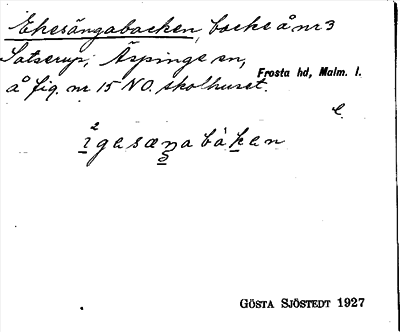 Ekesängabacken, backe å nr 3
Satserup; Äspinge sn,
Frosta hd, Malm. l.
å fig. nr 15 NO. skolhuset.
e.
GÖSTA SJÖSTEDT 1927